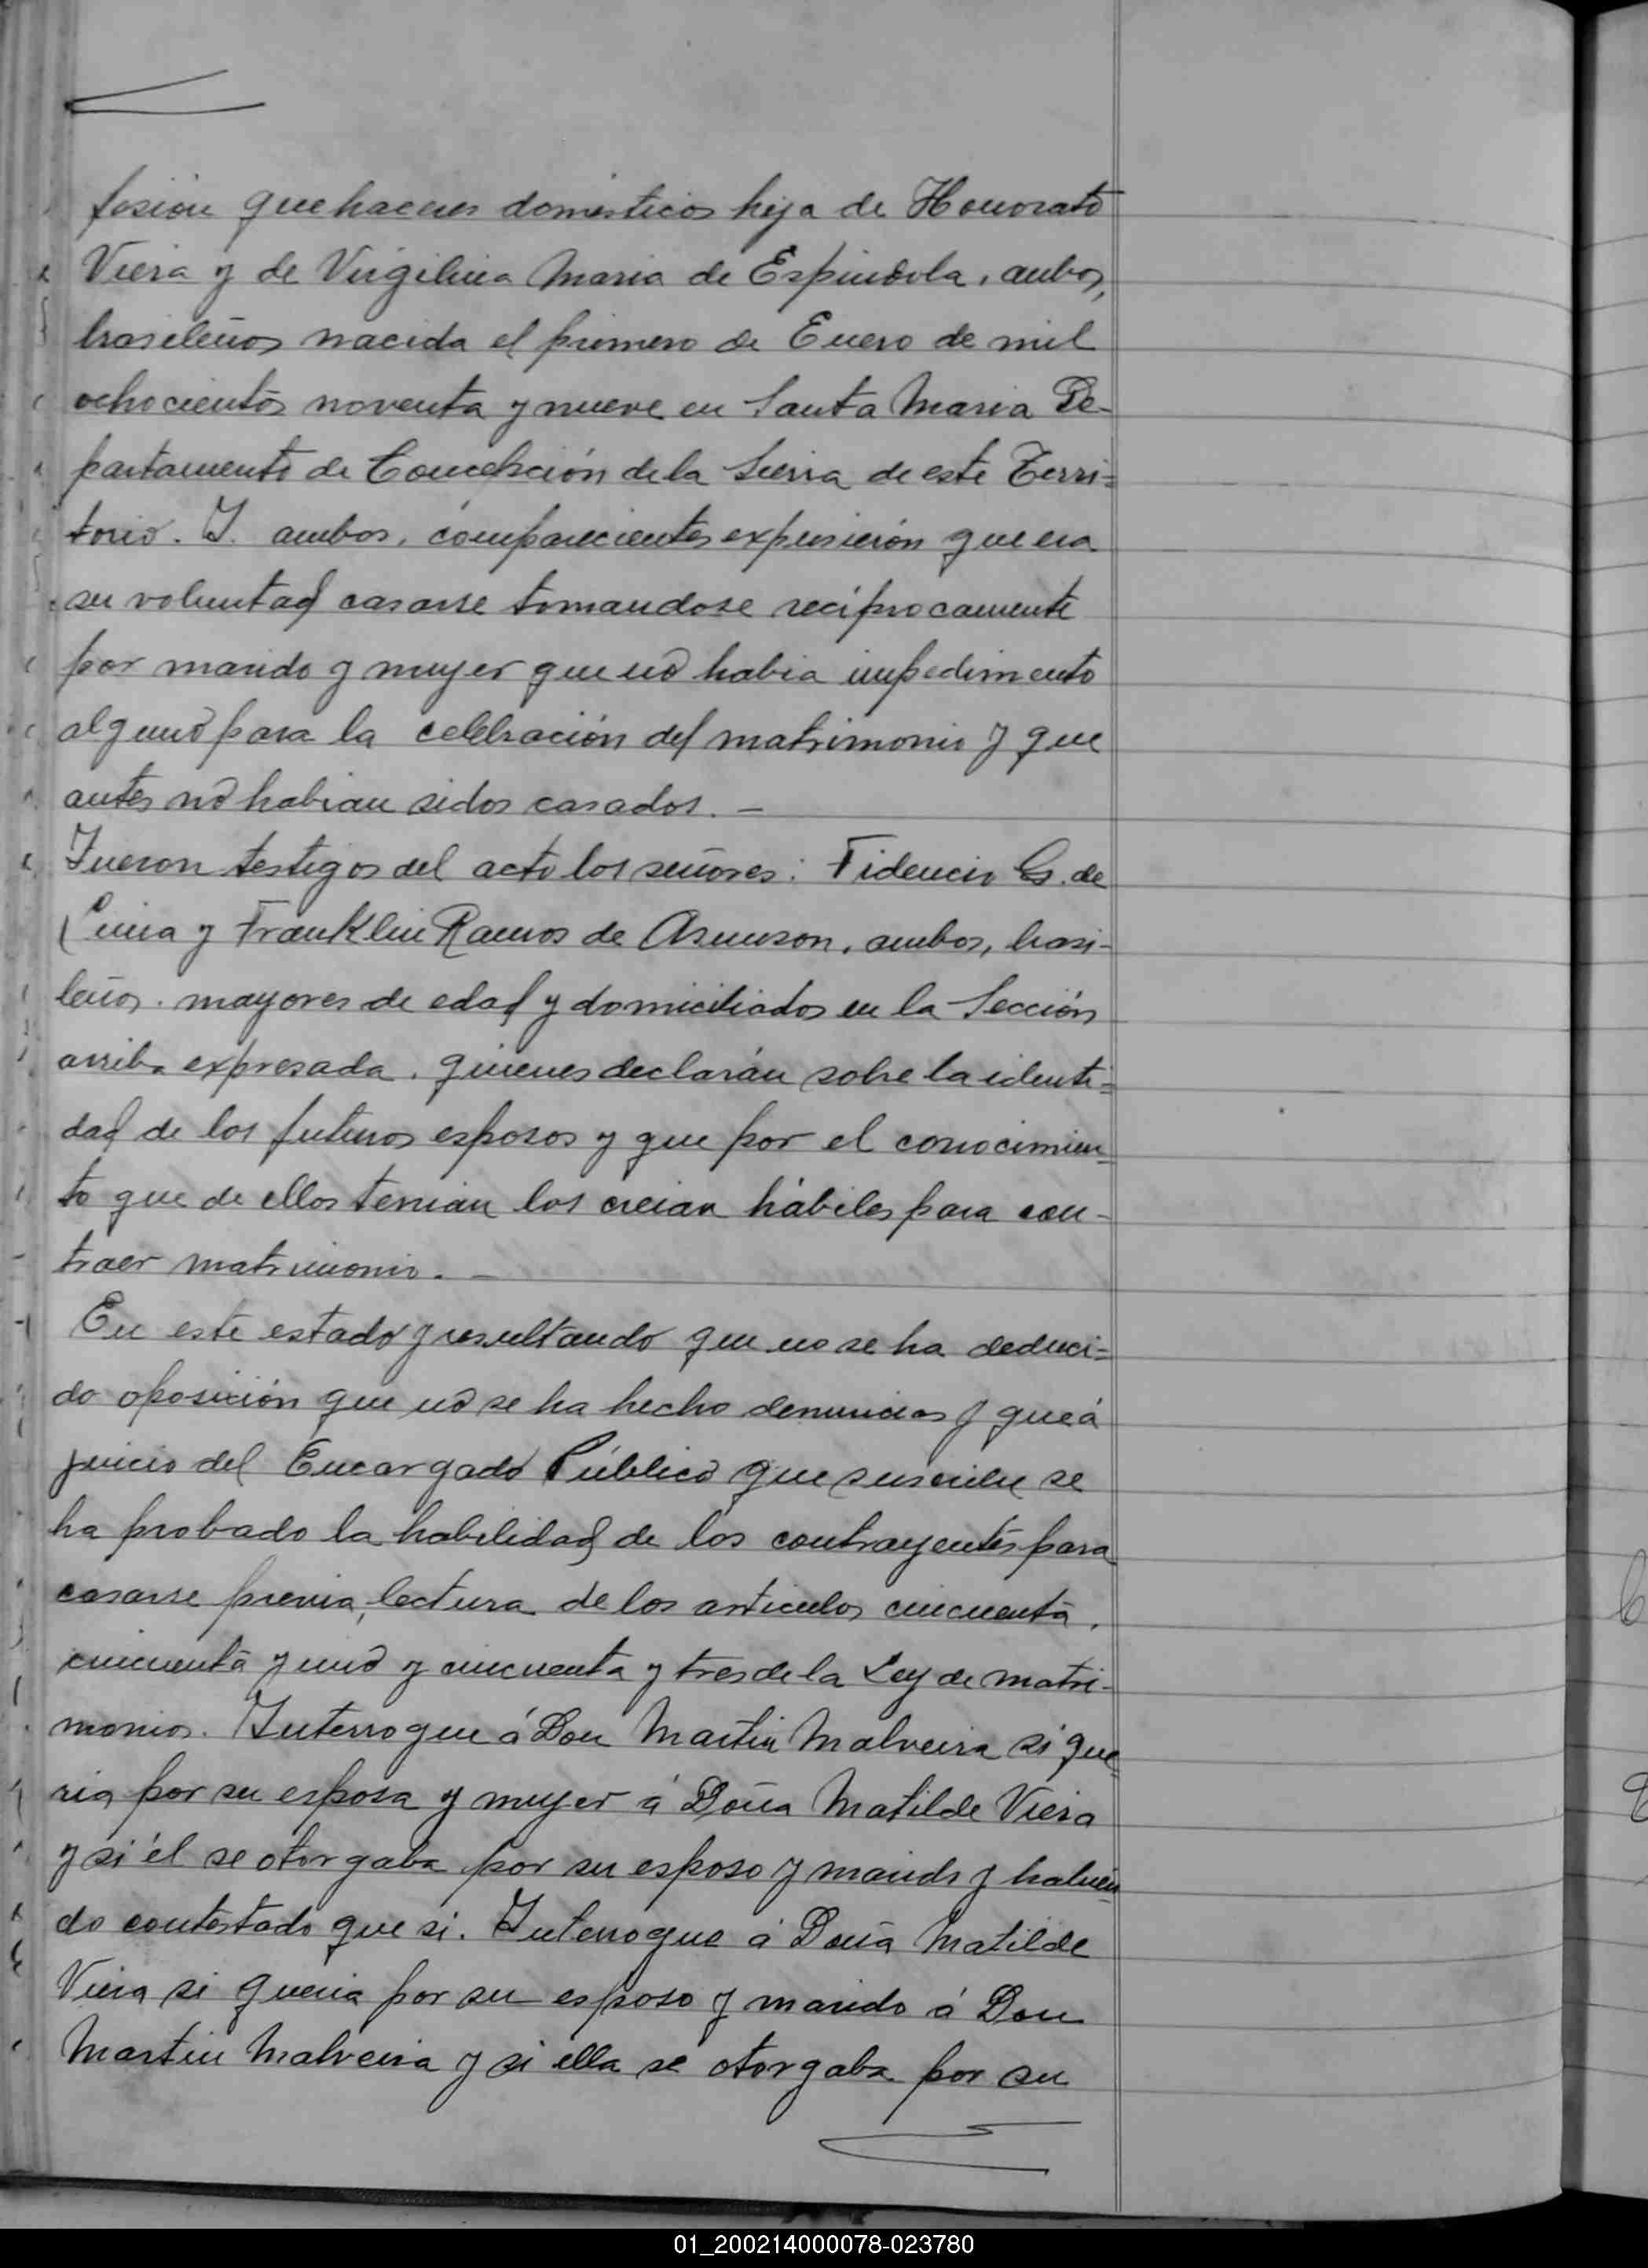 fesión quehaceres domesticos hija de Honorato
Viera y de Virgilina Maria de Espindola, ambos,
brasileños nacida el primero de Enero de mil
ochocientos noventa y nueve en Santa Maria De-
partamento de Concepción de la Sierra de este Terri=
torio. Y. ambos, comparecientes expusieron que era
su voluntad casarse tomandose recíprocamente
por marido y mujer que no habia impedimento
alguno para la celebración del matrimonio y que
antes no habian sidos casados. —
Fueron testigos del acto los señores: Fidencio G. de
Lima y Franklin Ramos de , ambos, brasi-
leños. mayores de edad y domiciliados en la Sección
arriba expresada. quienes declarán sobre la identi=
dad de los futuros esposos y que por el conocimien=
to que de ellos tenian los creian hábiles para con-
traer matrimonio. —
En este estado y resultando que no se ha deduci=
do oposición que no se ha hecho denuncias y que á
juicio del Encargado Público que suscribe se
ha probado la habilidad de los contrayentes para
casarse previa, lectura de los articulos cincuenta,
cincuenta y uno y cincuenta y tres de la Ley de matri-
monios. Interrogue á Don Martin Malveira si que=
ria por su esposa y mujer á Doña Matilde Viera
y si él se otorgaba por su esposo y marido y habien=
do contestado que si. Interrogue á Doña Matilde
Viera si queria por su esposo y marido á Don
Martin Malveira y si ella se otorgaba por su
01_200214000078-023780